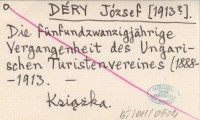 DÉRY József [1913?].
Die fünfundzwanzigjährige
Vergangenheit des Ungari-
schen Turistenvereines (1888-
-1913. –
Książka.